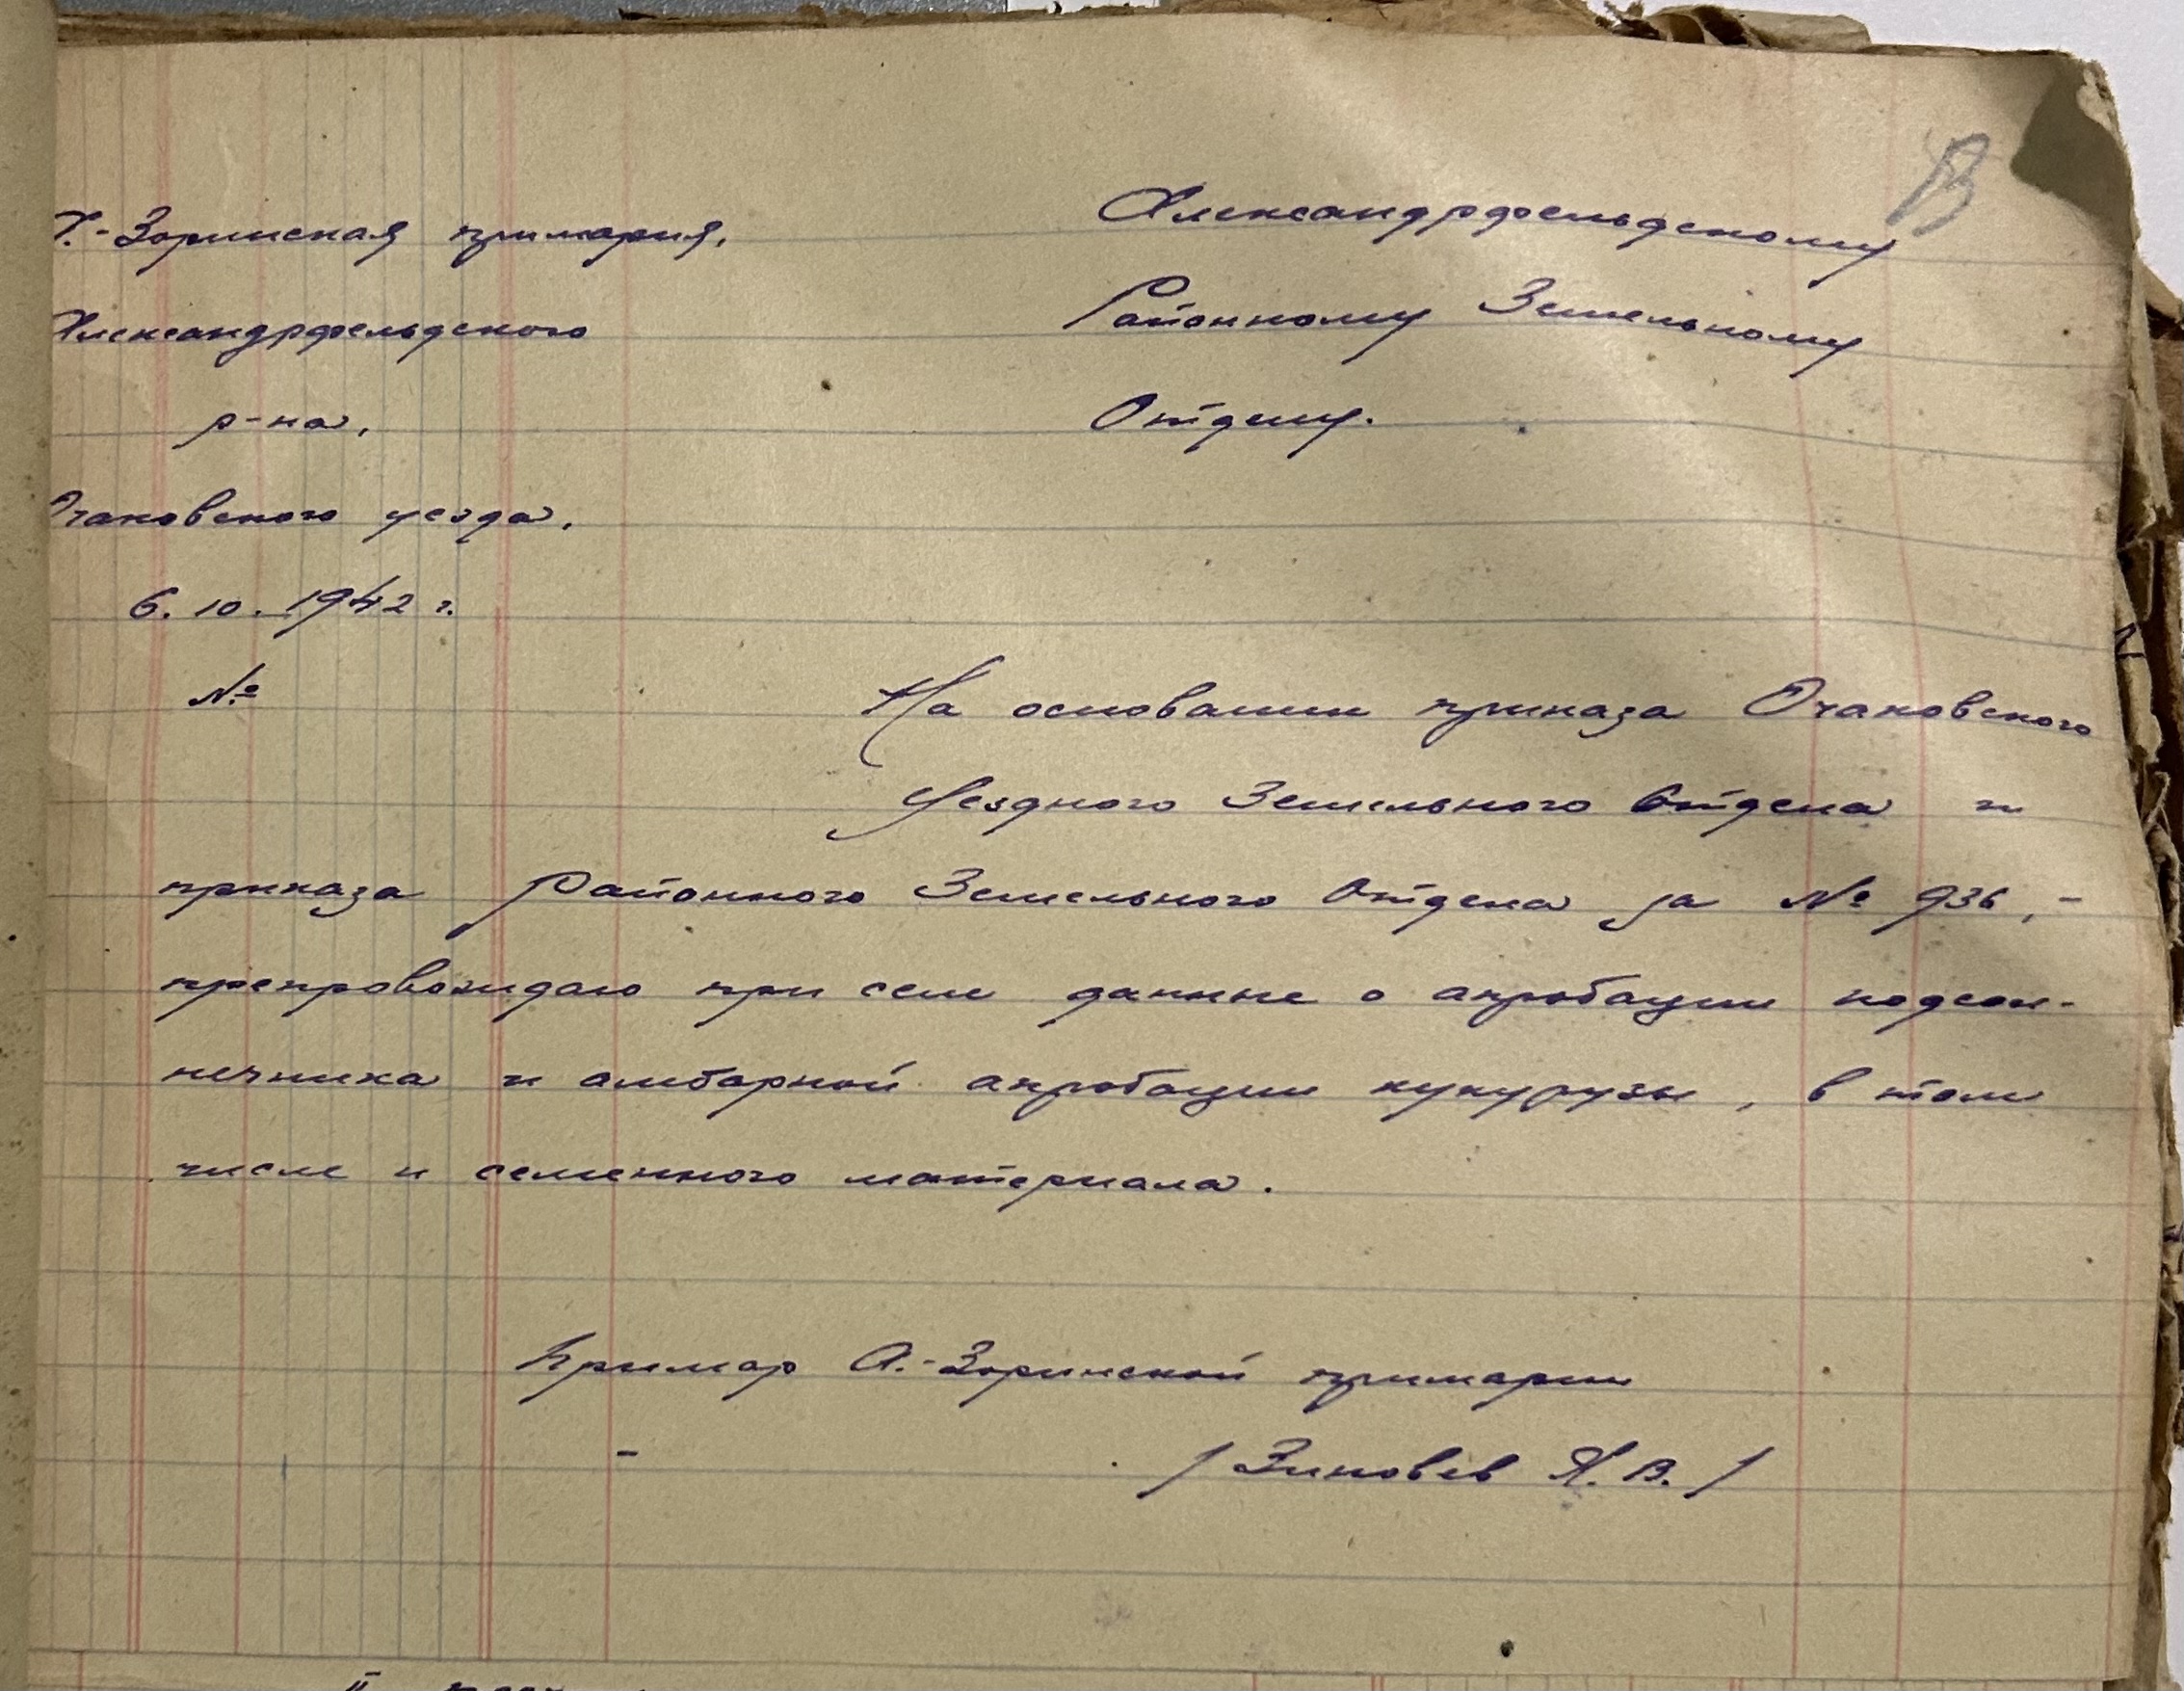 А.-Зоринская примария,
Александрфельдского
р-на,
Очаковского уезда.
6. 10. 1942 г.
№
Александрфельдскому
Районному Земельному
Отделу.
На основании приказа Очаковского
Уездного Земельного Отдела и
приказа Районного Земельного Отдела за № 936,-
препровождаю при сем данные о апробации подсол-
нечника и амбарной апробации кукурузы, в том
числе и семенного материала.
Примар А.-Зоринской примарии
/ Зиновьев А. В. /